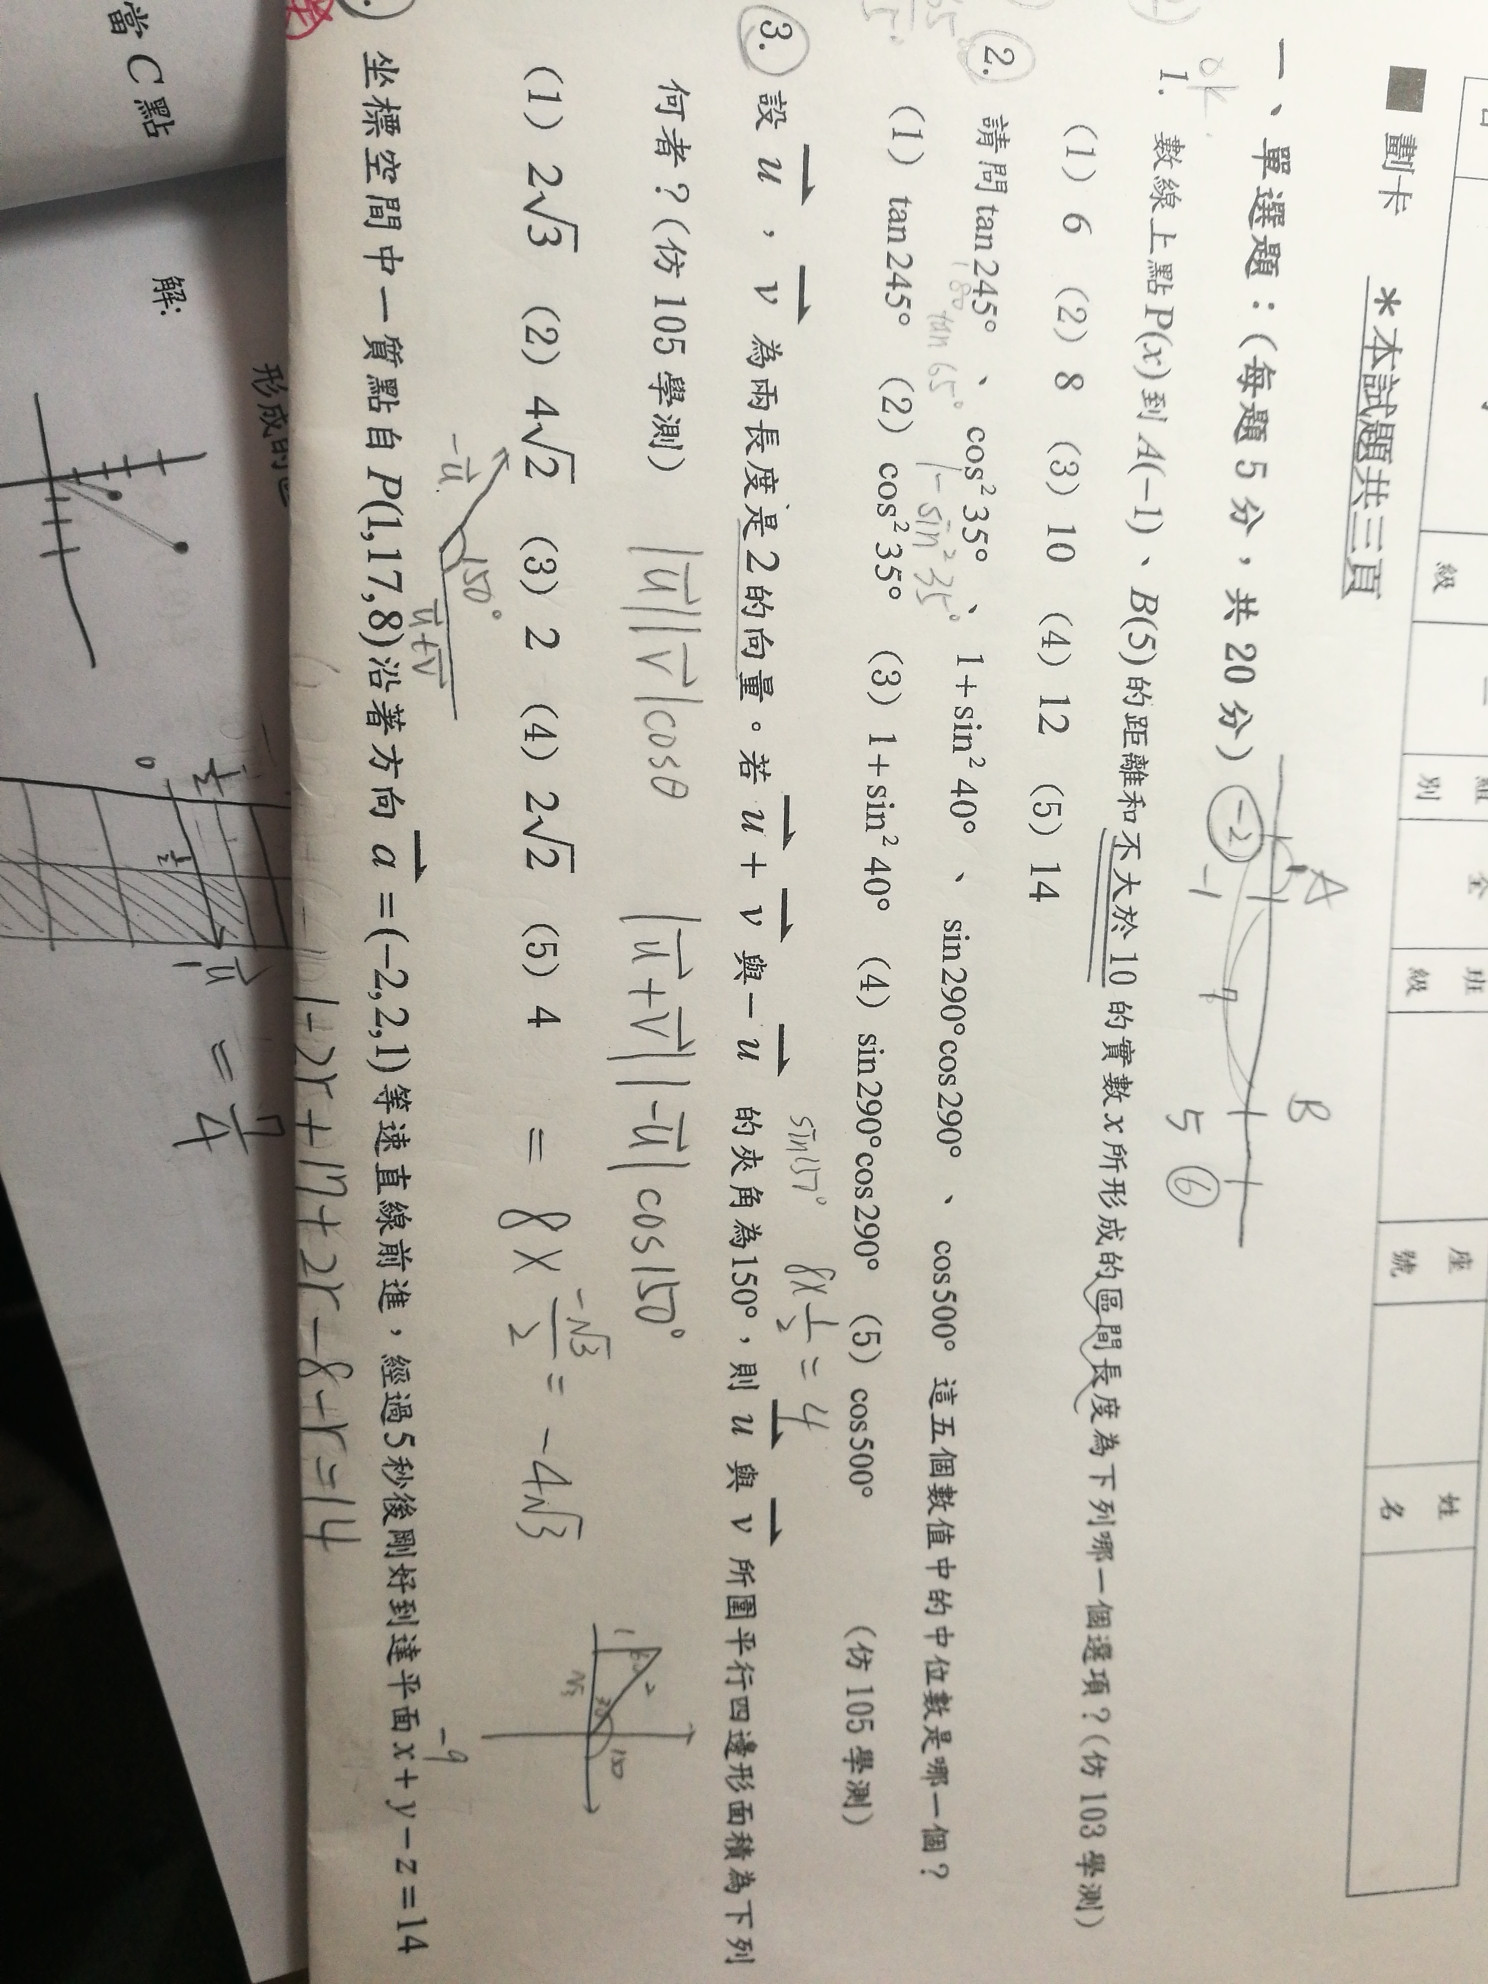 級 二 組別 全 班級 座號 姓名
■ 劃卡 *本試題共三頁
一、單選題：(每題 5 分，共 20 分)
-2 A -1 B 5 6
ok
1. 數線上點 P(x) 到 A(−1)、B(5) 的距離和不大於 10 的實數 x 所形成的區間長度為下列哪一個選項？(仿 103 學測)
(1) 6 (2) 8 (3) 10 (4) 12 (5) 14
2. 請問 tan 245°、cos² 35°、1+sin² 40°、sin 290° cos 290°、cos 500° 這五個數值中的中位數是哪一個？
180 tan 65° 1-sin² 35°
(1) tan 245° (2) cos² 35° (3) 1+sin² 40° (4) sin 290° cos 290° (5) cos 500° (仿 105 學測)
sin 157° 8×1/2 = 4
3. 設 u⃗，v⃗ 為兩長度是 2 的向量。若 u⃗ + v⃗ 與 − u⃗ 的夾角為 150°，則 u⃗ 與 v⃗ 所圍平行四邊形面積為下列
何者？(仿 105 學測)
|u⃗||v⃗|cosθ |u⃗+v⃗||-u⃗|cos150°
(1) 2√3 (2) 4√2 (3) 2 (4) 2√2 (5) 4
= 8 × -√3/2 = -4√3
1 2 √3 30 150
-u⃗ 150° u⃗+v⃗
-9
坐標空間中一質點自 P(1,17,8) 沿著方向 a⃗ = (−2,2,1) 等速直線前進，經過 5 秒後剛好到達平面 x + y − z = 14
1-2r+17+2r-8-r=14
當 C 點
解:
形成的
0 1/2 1/2 1 u⃗ = 7/4